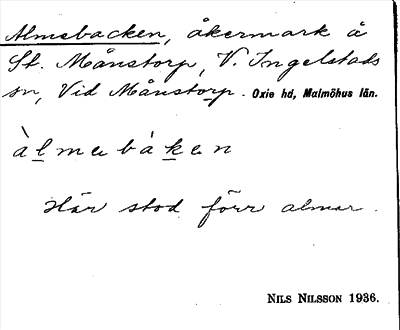 Almebacken, åkermark å
St. Månstorp, V. Ingelstads
sn, Vid Månstorp. Oxie hd, Malmöhus län.
àlmebáken
Här stod förr almar.
NILS NILSSON 1936.